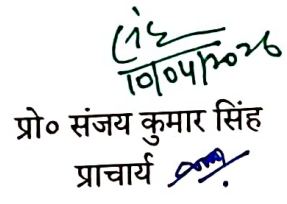 10/04/2026
प्रो० संजय कुमार सिंह
प्राचार्य